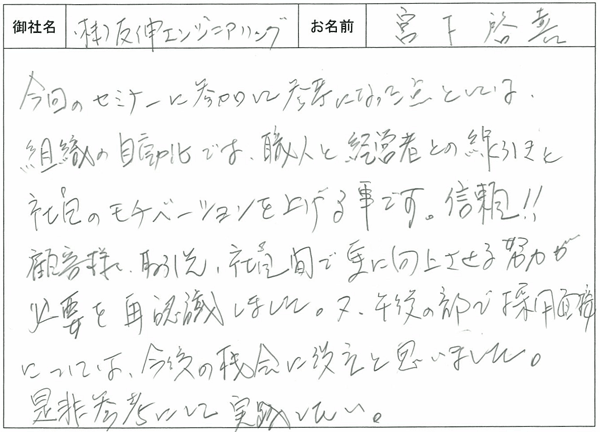 御社名 (株)友伸エンジニアリング お名前 宮下啓喜
今回のセミナーに参加して参考になった点としては、
組織の自動化では、職人と経営者との線引きと
社員のモチベーションを上げる事です。信頼!!
顧客様、取引先、社員間で更に向上させる努力が
必要を再認識しました。又、午後の部で採用面接
については、今後の機会に役立と思いました。
是非参考にして実践したい。